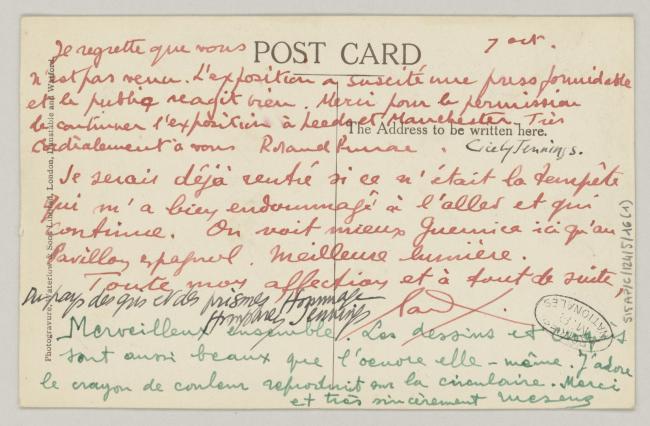 Je regrette que vous POST CARD 7 oct.
n'est pas venu. L'exposition a suscité une press formidable
et le public reagit bien. Merci pour la permission
de continuer l'exposition à Leeds et Manchester. Très
The Address to be written here.
cordialement à vous Roland Penrose. Cicely Jennings.
Je serais déjà rentré si ce n'était la tempête
qui m'a bien endommagé à l'aller et qui
continue. On voit mieux Guernica ici qu'au
Pavillon espagnol. Meilleure lumière.
Toute mon affection et à tout de suite,
Du pays des gris et des prismes, Hommage
Humphrey Jennings
Merveilleux ensemble. Les dessins et
sont aussi beaux que l'oeuvre elle-même. J'adore
le crayon de couleur reproduit sur la circulaire. Merci
et très sincèrement Mesens
Photogravure, Waterlow & Sons Limited, London, Dunstable and Watford.
NATIONALES